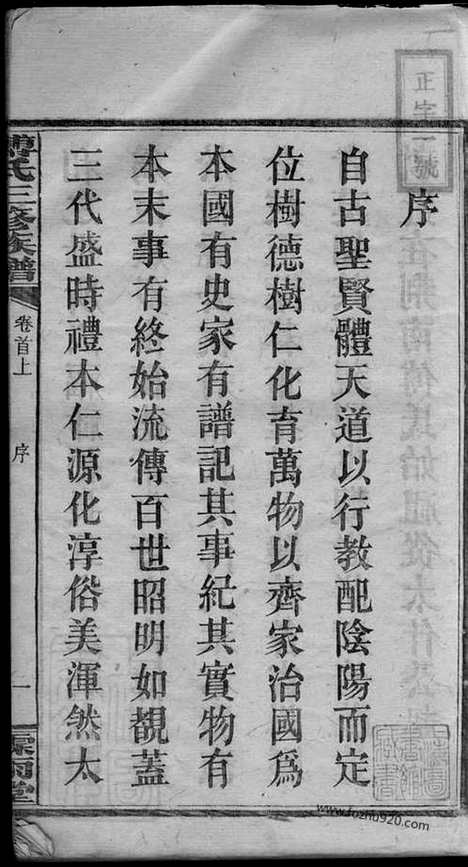 正字一號
序
自古聖賢體天道以行教配陰陽而定
位樹德樹仁化育萬物以齊家治國爲
本國有史家有譜記其事紀其實物有
本末事有終始流傳百世昭明如覩蓋
三代盛時禮本仁源化淳俗美渾然太
氏三修族譜
卷首上
序
一
堂
www.fozhu920.com